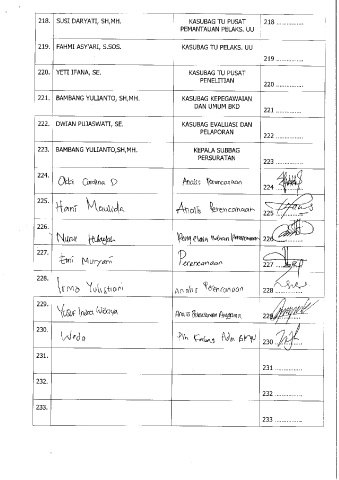 218. SUSI DARYATI, SH,MH. KASUBAG TU PUSAT 218 ..............
PEMANTAUAN PELAKS. UU
219. FAHMI ASYARI, S.SOS. KASUBAG TU PELAKS. UU
219 ..............
220. YETI IFANA, SE. KASUBAG TU PUSAT
PENELITIAN 220 ..............
221. BAMBANG YULIANTO, SH,MH. KASUBAG KEPEGAWAIAN
DAN UMUM BKD 221 ..............
222. DWIAN PUJASWATI, SE. KASUBAG EVALUASI DAN
PELAPORAN 222 ..............
223. BAMBANG YULIANTO,SH,MH. KEPALA SUBBAG
PERSURATAN 223 ..............
224. Carolina D Analis Perencanaan 224
225. Hani Maulida Analis Perencanaan 225
226. Nurul 226
227. Emi Muryani Perencanaan 227
228. Irma Yulistiani Analis Perencanaan 228
229. Yusuf Indra Wijaya Analis Anggaran 229
230. Weda Adm 230
231.
231 ..............
232.
232 ..............
233.
233 ..............